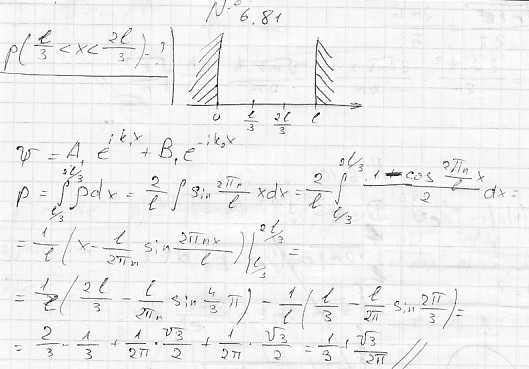 N-o 6.81
p(l/3 < x < 2l/3) - ?
0 l/3 2l/3 l
ψ = A₁ e^{ik₁x} + B₁ e^{-ik₁x}
p = ∫_{l/3}^{2l/3} ρdx = 2/l ∫ sin^{2πn/l} xdx = 2/l ∫_{l/3}^{2l/3} (1 - cos (2πn/l) x)/2 dx =
= 1/l (x - l/2πn sin 2πnx/l) |_{l/3}^{2l/3} =
= 1/l (2l/3 - l/2πn sin 4/3 π) - 1/l (l/3 - l/2π sin 2π/3) =
= 2/3 - 1/3 + 1/2π · √3/2 + 1/2π · √3/2 = 1/3 + √3/2π //